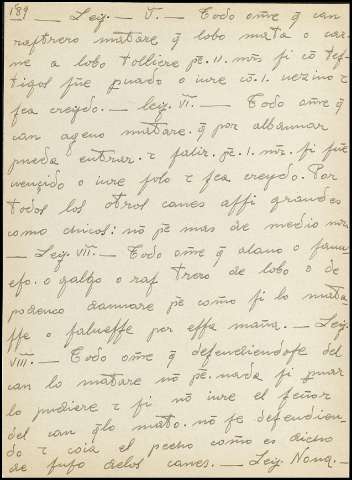 189
— Ley. — V. — Todo om̃e q̃ can
raſtrero matare q̃ lobo mata o car-
ne a lobo tolliere pẽ. II. mr̃s ſi cõ teſ-
tigos ſue prouado o iure cõ. I. uezino τ
ſea creydo. — Ley. VI. — Todo om̃e q̃
can ageno matare. q̃ por albannar
pueda entrar. τ ſalir. pẽ. I. mr̃. ſi fue
uençido o iure ſolo τ ſea creydo. Por
todos los otros canes aſſi grandes
como chicos: nõ pẽ mas de medio mr̃.
— Ley. VII. — Todo om̃e q̃ alano o ſau-
eſo. o galgo o raſtrero de lobo o de
podenco dannare pẽ como ſi lo mata-
ſſe o ſalueſſe por eſſa mañ̃a. — Ley.
VIII. — Todo om̃e q̃ defendiendoſe del
can lo matare nõ pẽ. nada ſi prouar
lo pudiere τ ſi nõ iure el ſeñor
del can q̃lo mato. nõ ſe defendien-
do τ coia el pecho como es dicho
de ſuſo delos canes. — Ley. Nona. —